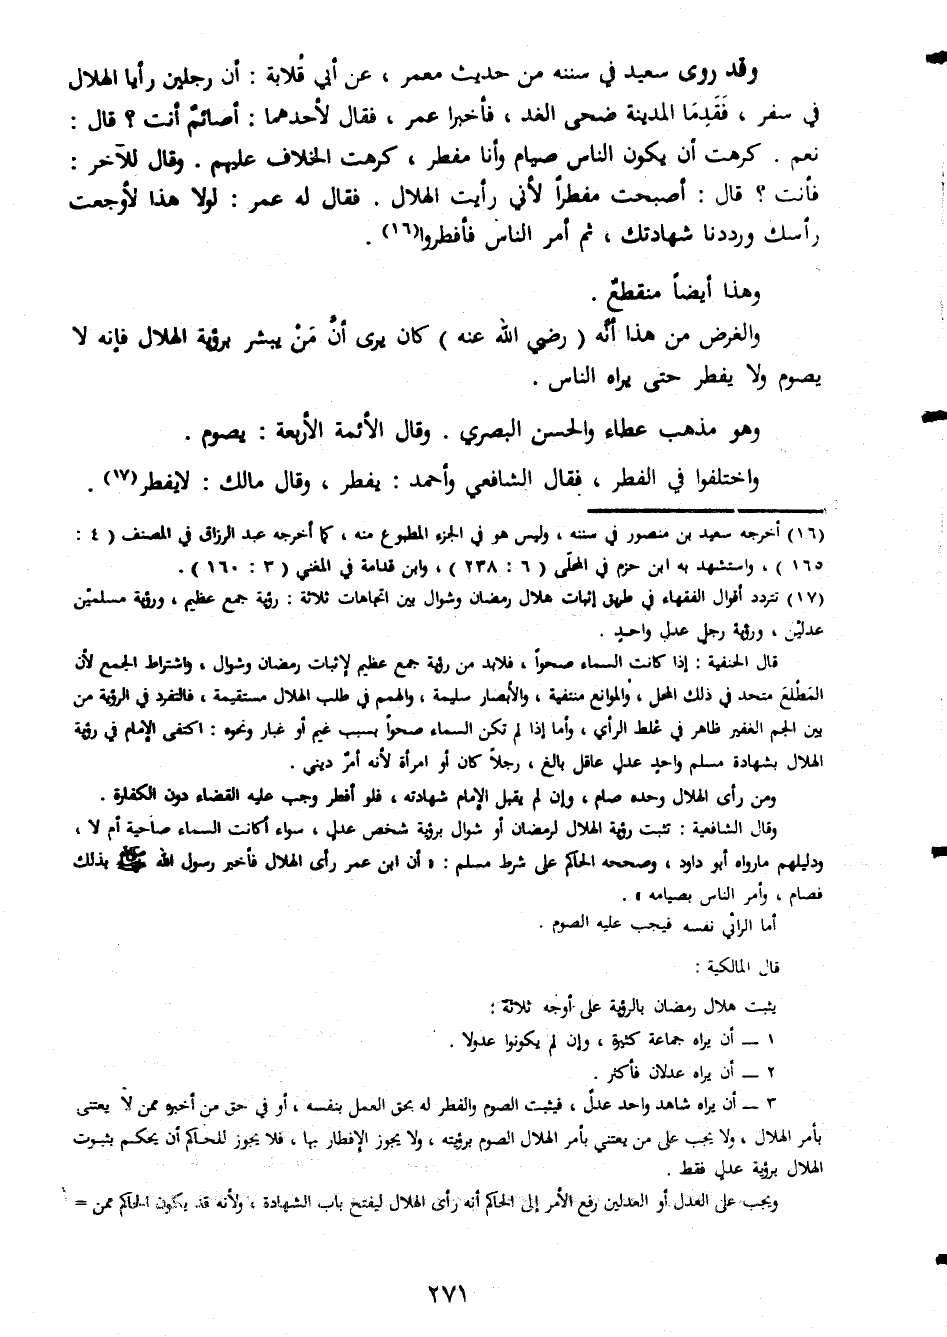 وقد روى سعيد في سننه من حديث معمر ، عن أبي قُلابة : أن رجلين رأيا الهلال
في سفر ، فَقَدِمَا المدينة ضحى الغد ، فأخبرا عمر ، فقال لأحدهما : أصائمٌ أنت ؟ قال :
نعم . كرهت أن يكون الناس صيام وأنا مفطر ، كرهت الخلاف عليهم . وقال للآخر :
فأنت ؟ قال : أصبحت مفطراً لأني رأيت الهلال . فقال له عمر : لولا هذا لأوجعت
رأسك ورددنا شهادتك ، ثم أمر الناس فأفطروا(١٦) .
وهذا أيضاً منقطعٌ .
والغرض من هذا أنَّه ( رضي الله عنه ) كان يرى أنَّ مَنْ يبشر برؤية الهلال فإنه لا
يصوم ولا يفطر حتى يراه الناس .
وهو مذهب عطاء والحسن البصري . وقال الأئمة الأربعة : يصوم .
واختلفوا في الفطر ، فقال الشافعي وأحمد : يفطر ، وقال مالك : لايفطر(١٧) .
(١٦) أخرجه سعيد بن منصور في سننه ، وليس هو في الجزء المطبوع منه ، كما أخرجه عبد الرزاق في المصنف ( ٤ :
١٦٥ ) ، واستشهد به ابن حزم في المحلّى ( ٦ : ٢٣٨ ) ، وابن قدامة في المغني ( ٣ : ١٦٠ ) .
(١٧) تتردد أقوال الفقهاء في طريق إثبات هلال رمضان وشوال بين اتجاهات ثلاثة : رؤية جمع عظيم ، ورؤية مسلميْن
عدليْن ، ورؤية رجلٍ عدلٍ واحدٍ .
قال الحنفية : إذا كانت السماء صحواً ، فلابد من رؤية جمع عظيم لإثبات رمضان وشوال ، واشتراط الجمع لأن
المَطْلع متحد في ذلك المحل ، والموانع منتفية ، والأبصار سليمة ، والهمم في طلب الهلال مستقيمة ، فالتفرد في الرؤية من
بين الجم الغفير ظاهر في غلط الرأي ، وأما إذا لم تكن السماء صحواً بسبب غيم أو غبار ونحوه : اكتفى الإمام في رؤية
الهلال بشهادة مسلم واحدٍ عدلٍ عاقل بالغ ، رجلاً كان أو امرأة لأنه أمرٌ ديني .
ومن رأى الهلال وحده صام ، وإن لم يقبل الإمام شهادته ، فلو أفطر وجب عليه القضاء دون الكفارة .
وقال الشافعية : تثبت رؤية الهلال لرمضان أو شوال برؤية شخص عدلٍ ، سواء أكانت السماء صاحية أم لا ،
ودليلهم مارواه أبو داود ، وصححه الحاكم على شرط مسلم : « أن ابن عمر رأى الهلال فأخبر رسول الله ﷺ بذلك
فصام ، وأمر الناس بصيامه » .
أما الرائي نفسه فيجب عليه الصوم .
قال المالكية :
يثبت هلال رمضان بالرؤية على أوجه ثلاثة :
١ ــ أن يراه جماعة كثيرة ، وإن لم يكونوا عدولا .
٢ ــ أن يراه عدلان فأكثر .
٣ ــ أن يراه شاهد واحد عدلٌ ، فيثبت الصوم والفطر له بحق العمل بنفسه ، أو في حق من أخبره ممن لا يعتنى
بأمر الهلال ، ولا يجب على من يعتني بأمر الهلال الصوم برؤيته ، ولا يجوز الإفطار بها ، فلا يجوز للحاكم أن يحكم بثبوت
الهلال برؤية عدلٍ فقط .
ويجب على العدل أو العدلين رفع الأمر إلى الحاكم أنه رأى الهلال ليفتح باب الشهادة ، ولأنه قد يكون الحاكم ممن =
٢٧١